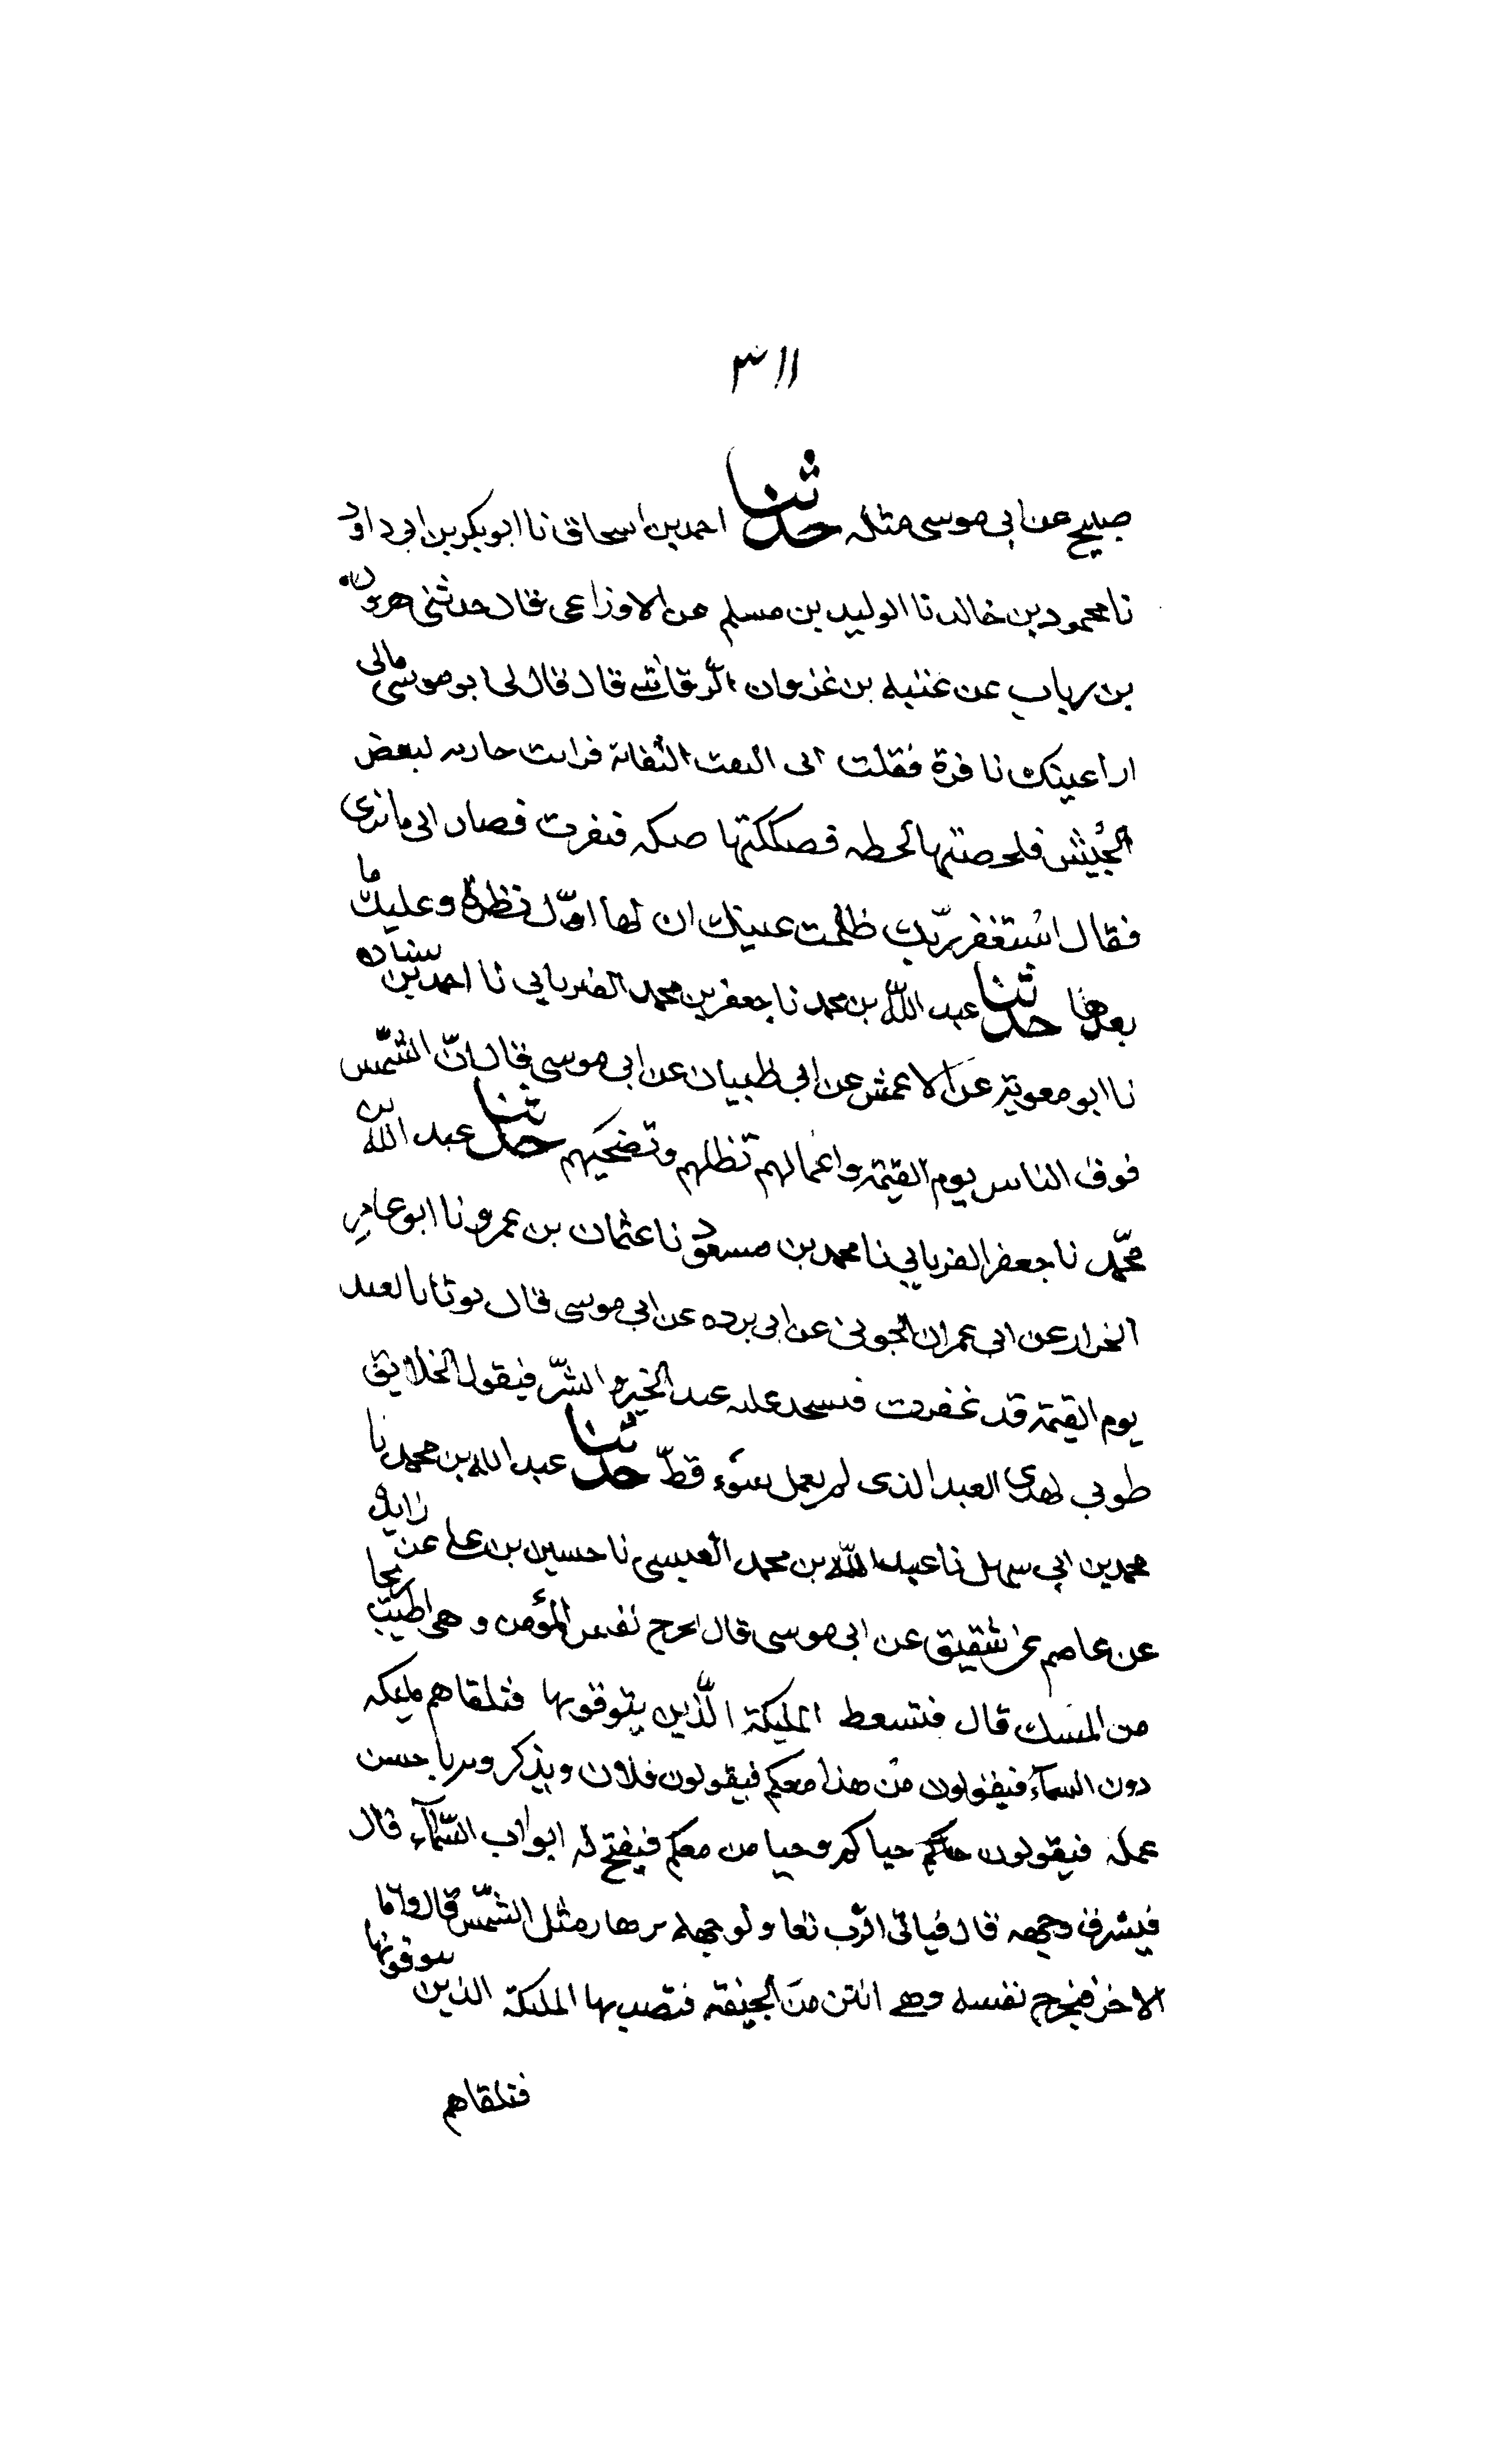 ٣١١
صبيح عن ابي موسى مثله حدثنا احمد بن اسحاق نا ابو بكر بن ابي داود
نا محمود بن خالد نا الوليد بن مسلم عن الاوزاعى قال حدثنى هرون
بن رياب عن عتبه بن غزوان الرقاشے قال قال لى ابو موسى مالى
ارا عينك نافرة فقلت انى التفت التفاتة فرايت جاريه لبعض
الجيش فلحصتها لحظه فصككتها صكه فنفرت فصارت الى ما ترى
فقال استغفر ربّك ظلمت عينك ان لها اوّل نظرة وعليك ما
بعدها حدثنا عبد الله بن محمد نا جعفر بن محمد الفريابي نا احمد بن سنان
نا ابو معوية عن الاعمش عن ابي ظبيان عن ابي موسى قال انّ الشّمس
فوق الناس يوم القيمة واعمالهم تظلهم وتضحيهم حدثنا عبد الله بن
محمّد نا جعفر الفريابي نا محمد بن مسعود نا عثمان بن عمرو نا ابو عامر
الخزاز عن ابى عمران الجونى عن ابى برده عن ابي موسى قال يوتا بالعبد
يوم القيمة قد غفرت عبد الخير والشّر فيقول الخلايق
طوبى لهذى العبد الذى لم يعمل بسوء قطّ حدثنا عبد الله بن محمد نا
محمد بن ابي سهل نا عبد الله بن محمد العبسى نا حسين بن على عن زايدة
عن عاصم عن شقيق عن ابى موسى قال تخرج نفس المؤمن وهى اطيب ريحا
من المسك قال فتسعط المليكة الّذين يتوفونها فتلقاهم مليكه
دون السمآء فيقولون من هذا معكم فيقولون فلان ويذكرونه باحسن
عمله فيقولون حياكم وحيا من معكم فيفتح له ابواب السّمآء قال
فيشرف وجهه قال فياتى الرّب تعا ولوجهه برهان مثل الشّمس قال واما
الاخر فتخرج نفسه وهے انتن من الجيفة فتصعد بها المليكة الذين يتوفونها
فتلقاهم